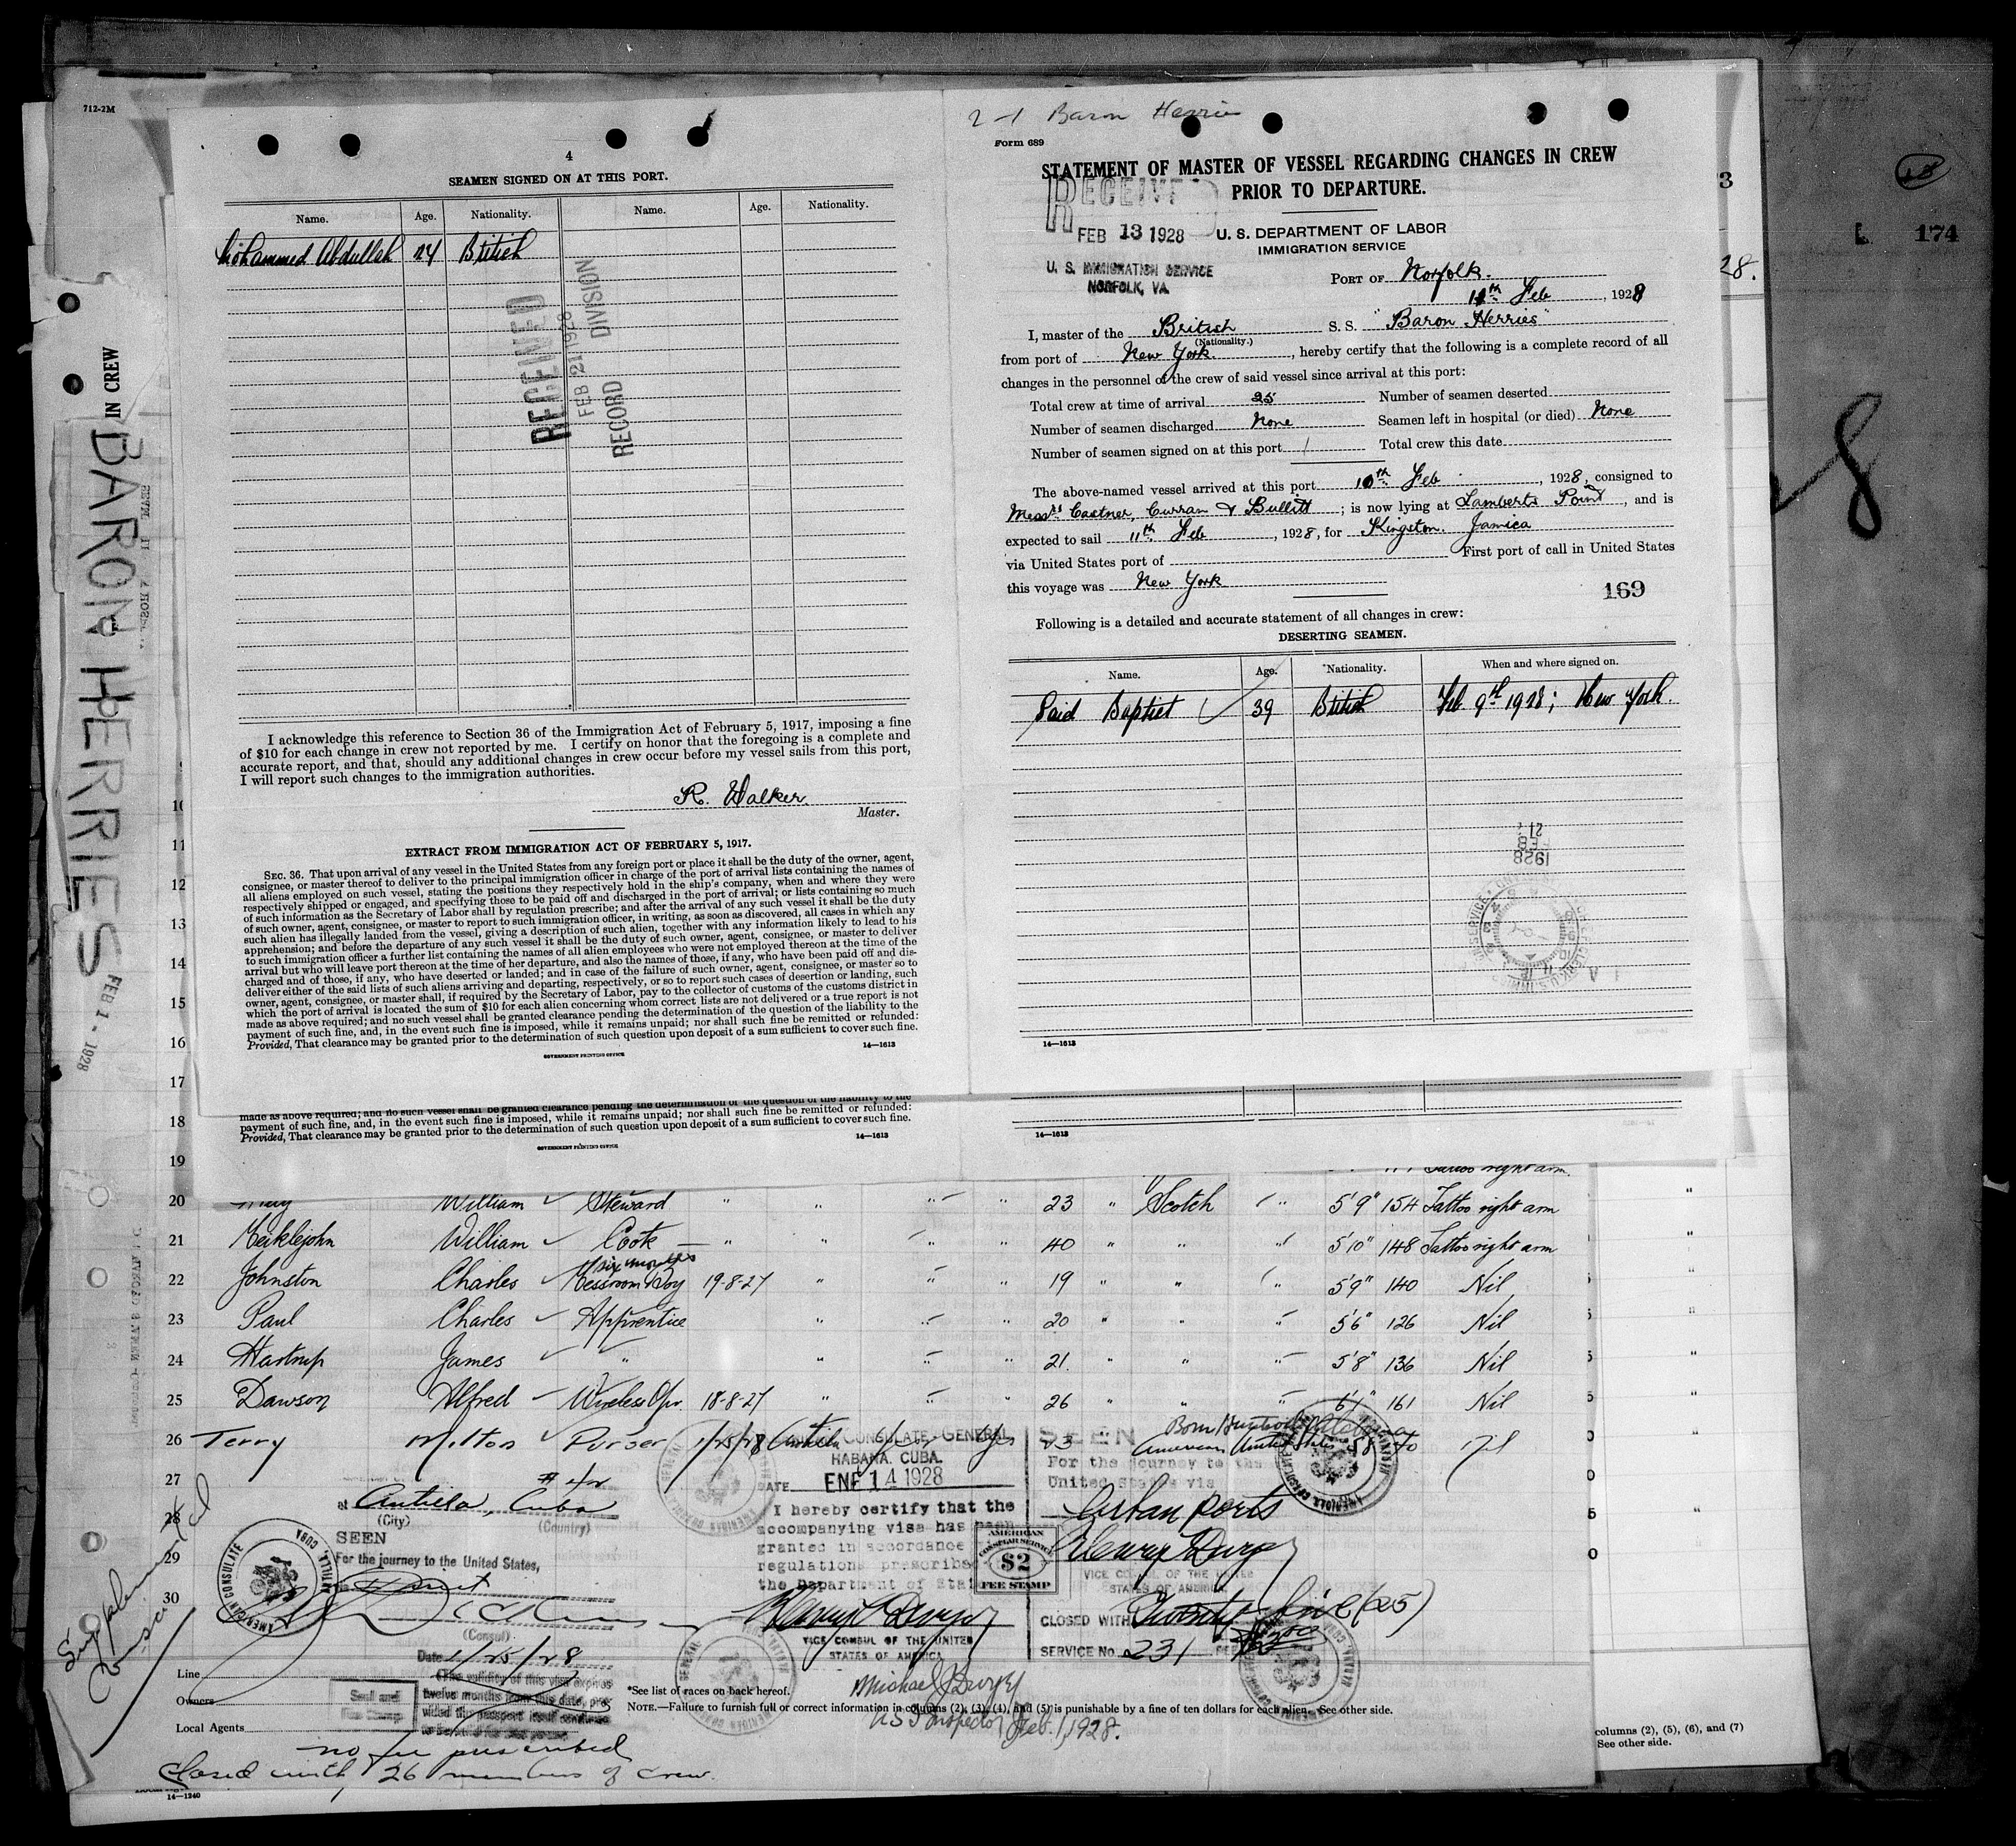 712-2M
4
SEAMEN SIGNED ON AT THIS PORT.
Name. Age. Nationality. Name. Age. Nationality.
Mohammed Abdullah 24 British
RECEIVED
FEB 21 1928
RECORD DIVISION
I acknowledge this reference to Section 36 of the Immigration Act of February 5, 1917, imposing a fine
of $10 for each change in crew not reported by me. I certify on honor that the foregoing is a complete and
accurate report, and that, should any additional changes in crew occur before my vessel sails from this port,
I will report such changes to the immigration authorities.
R. Walker
Master.
EXTRACT FROM IMMIGRATION ACT OF FEBRUARY 5, 1917.
SEC. 36. That upon arrival of any vessel in the United States from any foreign port or place it shall be the duty of the owner, agent,
consignee, or master thereof to deliver to the principal immigration officer in charge of the port of arrival lists containing the names of
all aliens employed on such vessel, stating the positions they respectively hold in the ship's company, when and where they were
respectively shipped or engaged, and specifying those to be paid off and discharged in the port of arrival; or lists containing so much
of such information as the Secretary of Labor shall by regulation prescribe; and after the arrival of any such vessel it shall be the duty
of such owner, agent, consignee, or master to report to such immigration officer, in writing, as soon as discovered, all cases in which any
such alien has illegally landed from the vessel, giving a description of such alien, together with any information likely to lead to his
apprehension; and before the departure of any such vessel it shall be the duty of such owner, agent, consignee, or master to deliver
to such immigration officer a further list containing the names of all alien employees who were not employed thereon at the time of the
arrival but who will leave port thereon at the time of her departure, and also the names of those, if any, who have been paid off and dis-
charged and of those, if any, who have deserted or landed; and in case of the failure of such owner, agent, consignee, or master so to
deliver either of the said lists of such aliens arriving and departing, respectively, or so to report such cases of desertion or landing, such
owner, agent, consignee, or master shall, if required by the Secretary of Labor, pay to the collector of customs of the customs district in
which the port of arrival is located the sum of $10 for each alien concerning whom correct lists are not delivered or a true report is not
made as above required; and no such vessel shall be granted clearance pending the determination of the question of the liability to the
payment of such fine, and, in the event such fine is imposed, while it remains unpaid; nor shall such fine be remitted or refunded:
Provided, That clearance may be granted prior to the determination of such question upon deposit of a sum sufficient to cover such fine.
GOVERNMENT PRINTING OFFICE
14—1613
2-1 Baron Herries
Form 689
STATEMENT OF MASTER OF VESSEL REGARDING CHANGES IN CREW
PRIOR TO DEPARTURE.
RECEIVED
FEB 13 1928
U. S. IMMIGRATION SERVICE
NORFOLK, VA.
U. S. DEPARTMENT OF LABOR
IMMIGRATION SERVICE
PORT OF Norfolk.
11th Feb, 1928
I, master of the British S. S. "Baron Herries"
(Nationality.)
from port of New York, hereby certify that the following is a complete record of all
changes in the personnel of the crew of said vessel since arrival at this port:
Total crew at time of arrival 25 Number of seamen deserted
Number of seamen discharged None Seamen left in hospital (or died) None
Number of seamen signed on at this port 1 Total crew this date
The above-named vessel arrived at this port 10th Feb, 1928, consigned to
Messrs Castner, Curran & Bullitt; is now lying at Lamberts Point, and is
expected to sail 11th Feb, 1928, for Kingston. Jamica
via United States port of First port of call in United States
this voyage was New York
169
Following is a detailed and accurate statement of all changes in crew:
DESERTING SEAMEN.
Name. Age. Nationality. When and where signed on.
Said Baptist 39 British Feb. 9th 1928; New York.
21
FEB
1928
14—1613
IN CREW
BARON HERRIES
FEB 1 - 1928
3
28.
174
10
11
12
13
14
15
16
17
18
19
made as above required; and no such vessel shall be granted clearance pending the determination of the question of the liability to the
payment of such fine, and, in the event such fine is imposed, while it remains unpaid; nor shall such fine be remitted or refunded:
Provided, That clearance may be granted prior to the determination of such question upon deposit of a sum sufficient to cover such fine.
GOVERNMENT PRINTING OFFICE
14—1613
14—1613
Tattoo right arm
20 William Steward " " " " 23 " Scotch " 5'9" 154 Tattoo right arm
21 Meiklejohn William Cook " " " " 40 " " " 5'10" 148 Tattoo right arm
six months
22 Johnston Charles Messroom Boy 19-8-27 " " " 19 " " 5'9" 140 Nil
23 Paul Charles Apprentice " " " 20 " " " 5'6" 126 Nil
24 Hartrup James " " " " 21. " " " 5'8" 136 Nil
25 Dawson Alfred Wireless Opr. 18-8-27 " " " 26 " " " 6'1" 161 Nil
26 Terry Milton Purser 1/25/28 Antilla yes 23 American United States 5'8 Nil
27
28
29
30
Supplemental
at Antilla, Cuba
(City) (Country)
SEEN
For the journey to the United States,
(Consul)
Date 1/25/28
(The validity of this visa expires
twelve months from this date, pro-
vided the passport itself continues
AMERICAN CONSULATE
ANTILLA, CUBA
Seal and
Fee Stamp
CONSULATE GENERAL
HABANA, CUBA.
DATE ENE 14 1928
I hereby certify that the
accompanying visa has been
granted in accordance
regulations prescribed
the Department of State
VICE CONSUL OF THE UNITED
STATES OF AMERICA
AMERICAN
CONSULAR SERVICE
$2
FEE STAMP
SEEN
For the journey to the
United States via
Cuban ports
VICE CONSUL OF THE UNITED
STATES OF AMERICA
CLOSED WITH Twenty-five (25)
SERVICE No. 231
Line
Owners
Local Agents
*See list of races on back hereof.
NOTE.—Failure to furnish full or correct information in columns (2), (3), (4), and (5) is punishable by a fine of ten dollars for each alien. See other side.
US Inspector Feb. 1, 1928.
no fee prescribed
Closed with 26 members of crew.
14—1240
columns (2), (5), (6), and (7)
See other side.